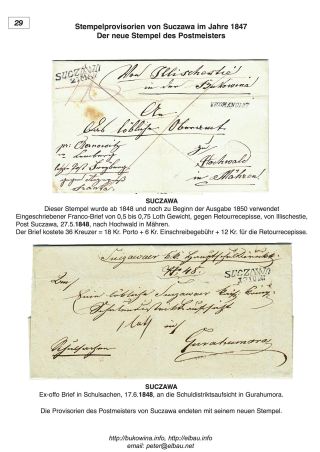 29
Stempelprovisorien von Suczawa im Jahre 1847
Der neue Stempel des Postmeisters
SUCZAWA
Von Illischestie
in der Bukowina
RECOMANDIRT
An
Das löbliche Oberamt
zu
Hochwald
in Mähren
SUCZAWA
Dieser Stempel wurde ab 1848 und noch zu Beginn der Ausgabe 1850 verwendet
Eingeschriebener Franco-Brief von 0,5 bis 0,75 Loth Gewicht, gegen Retourrecepisse, von Illischestie,
Post Suczawa, 27.5.1848, nach Hochwald in Mähren.
Der Brief kostete 36 Kreuzer = 18 Kr. Porto + 6 Kr. Einschreibegebühr + 12 Kr. für die Retourrecepisse.
SUCZAWA
Schulsachen
Gurahumora
SUCZAWA
Ex-offo Brief in Schulsachen, 17.6.1848, an die Schuldistriktsaufsicht in Gurahumora.
Die Provisorien des Postmeisters von Suczawa endeten mit seinem neuen Stempel.
http://bukowina.info, http://elbau.info
email: peter@elbau.net